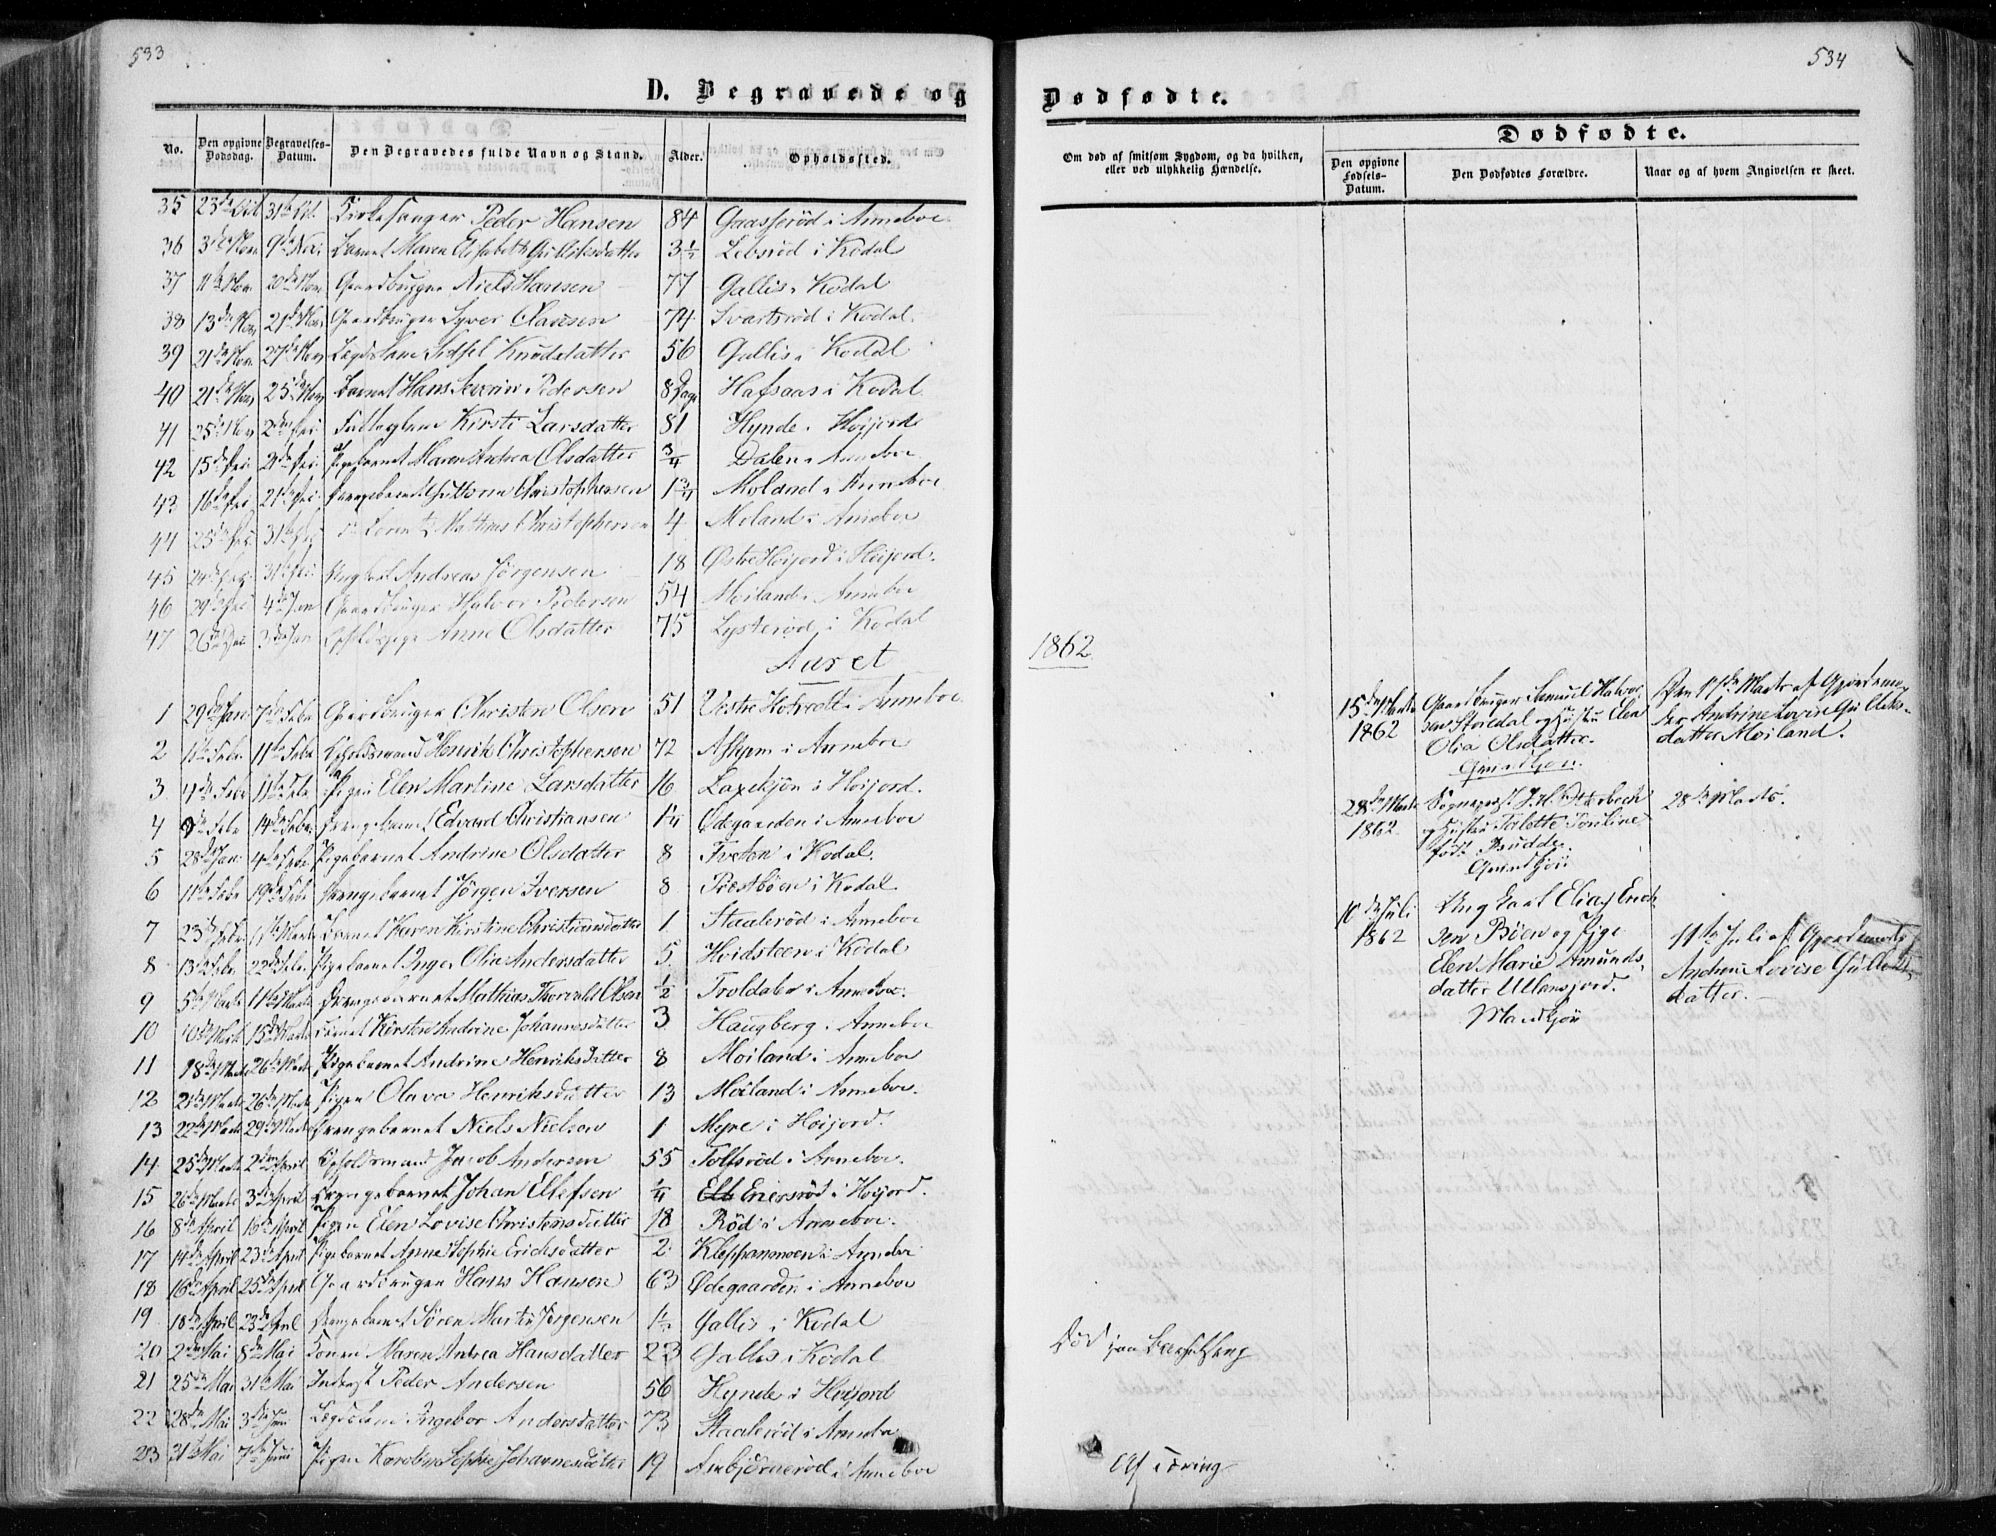 533
D. Begravede og
No. Den opgivne Dødsdag. Begravelses-Datum. Den Begravedes fulde Navn og Stand. Alder. Opholdssted.
35 23de Oct 31te Oct. Kirkesanger Peder Hansen 84 Gaasserød i Anneboe
36 3de Nov 9de Nov. Barnet Maren Elisabeth Gulliksdatter 3½ Lebsrød i Kodal
37 11te Nov 20de Nov. Gaardbruger Niels Hansen 77 Gallis i Kodal
38 13de Nov 21de Nov Gaardbruger Syver Clausen 74 Svartsrød i Kodal
39 21de Nov 27de Nov Lægdslem Sidsel Knudsdatter 56 Gallis i Kodal
40 21de Nov 25de Nov Barnet Hans Severin Pedersen 8 Dage Hafsaas i Kodal
41 25de Nov 2den Dec. Fattiglem Kirsti Larsdatter 81 Hynde i Høijord
42 15de Dec. 21de Dec. Pigebarnet Maren Andrea Olsdatter ¾ Dalen i Anneboe
43 16de Dec 21de Dec. Drengebarnet Guttorm Christophersen 1¾ Moland i Anneboe
44 25de Dec. 31te Dec Do Lorentz Mathias Christophersen 4 Moland i Anneboe
45 24de Dec. 31te Dec. Ungkarl Andreas Jørgensen 18 Østre Høijord i Høijord.
46 29de Dec 4de Jan Gaardbruger Halvor Pedersen 54 Moiland i Anneboe
47 26de Dec 3de Jan Anne Olsdatter 75 Lysterød i Kodal
Aaret
1 29de Jan 7de Febr Gaardbruger Christen Olsen 51 Vestre Hotvedt i Anneboe
2 11te Febr Opholdsmand Henrik Christophersen 72 Askjem i Anneboe
3 4de Febr 11te Febr Pigen Elen Martine Larsdatter 16 Laxekjøn i Høijord.
4 Febr 14de Febr. Drengebarnet Edvard Christiansen 1¼ Ødegaarden i Anneboe
5 28de Jan. 4de Febr. Pigebarnet Andrine Olsdatter 8 Tveten i Kodal.
6 11te Febr 19de Febr Drengebarnet Jørgen Iversen 8 Præstbøen i Kodal
7 23de Febr. Marts Barnet Karen Kirstine Christiansdatter 1 Staalerød i Anneboe
8 13de Febr. 22de Febr. Pigebarnet Inger Olia Andersdatter 5 Hvidsteen i Kodal
9 5te Marts 11te Marts Drengebarnet Mathias Thorvald Olsen ½ Troldaber i Anneboe.
10 10de Marts 15de Marts Barnet Kirsten Andrine Johannesdatter 3 Haugberg i Anneboe
11 18de Marts 26de Marts Pigebarnet Andrine Henriksdatter 8 Moiland i Anneboe
12 21de Marts 26de Marts Pigen Olava Henriksdatter 13 Moiland i Anneboe.
13 22de Marts 29de Marts Drengebarnet Niels Nielsen 1 Myre i Høijord.
14 25de Marts 2den April Opholdsmand Jacob Andersen 55 Tolfsrød i Anneboe.
15 26de Marts 3de April Drengebarnet Johan Ellefsen ¼ Enersrød i Høijord.
16 8de April 16de April Pigen Elen Lovise Christensdatter 18 Rød i Anneboe.
17 14de April 23de April Pigebarnet Anne Sophie Erichsdatter 2 Kleppanmoen i Anneboe
18 16de April 25de April Gaardbruger Hans Hansen 63 Ødegaarden i Anneboe
19 18de April 23de April Drengebarnet Søren Martin Jørgensen 1½ Gallis i Kodal
20 2den Mai 8de Mai Konen Maren Andrea Hansdatter 23 Gallis i Kodal
21 25de Mai 31te Mai Inderst Peder Andersen 56 Hynde i Høijord
22 28de Mai 3de Juni Lægdslem Ingebor Andersdatter 73 Staalerød i Anneboe
23 31te Mai 7de Juni Pigen Karoline Sophie Johannesdatter 19 Anbjørnerød i Anneboe
534
Dødfødte.
Dødfødte.
Om død af smitsom Sygdom, og da hvilken, eller ved ulykkelig Hændelse.
Den opgivne Fødsels-Datum.
Den Dødfødtes Forældre.
Naar og af hvem Angivelsen er skeet.
1862
15de Marts 1862
Gaardbruger Samuel Halvor-
sen Storedal og Hustru Elen
Olia Olsdatter.
Qvindkjøn.
Den 17de Marts af Gjordemo-
der Andrine Lovise Gulliks-
datter Moiland.
28de Marts 1862
Sognepræst J. H.
og Hustru Tolette Pauline
født Budde.
Qvindkjøn
28de Marts.
10de Juli 1862
Ungkarl Elias Erik-
sen Bøen og Pige
Elen Marie Amunds-
datter Ullensjord.
Mandkjøn
11te Juli af Gjordemoder
Andrine Lovise Gulliks-
datter.
Død paa Barselseng
Af Tæring